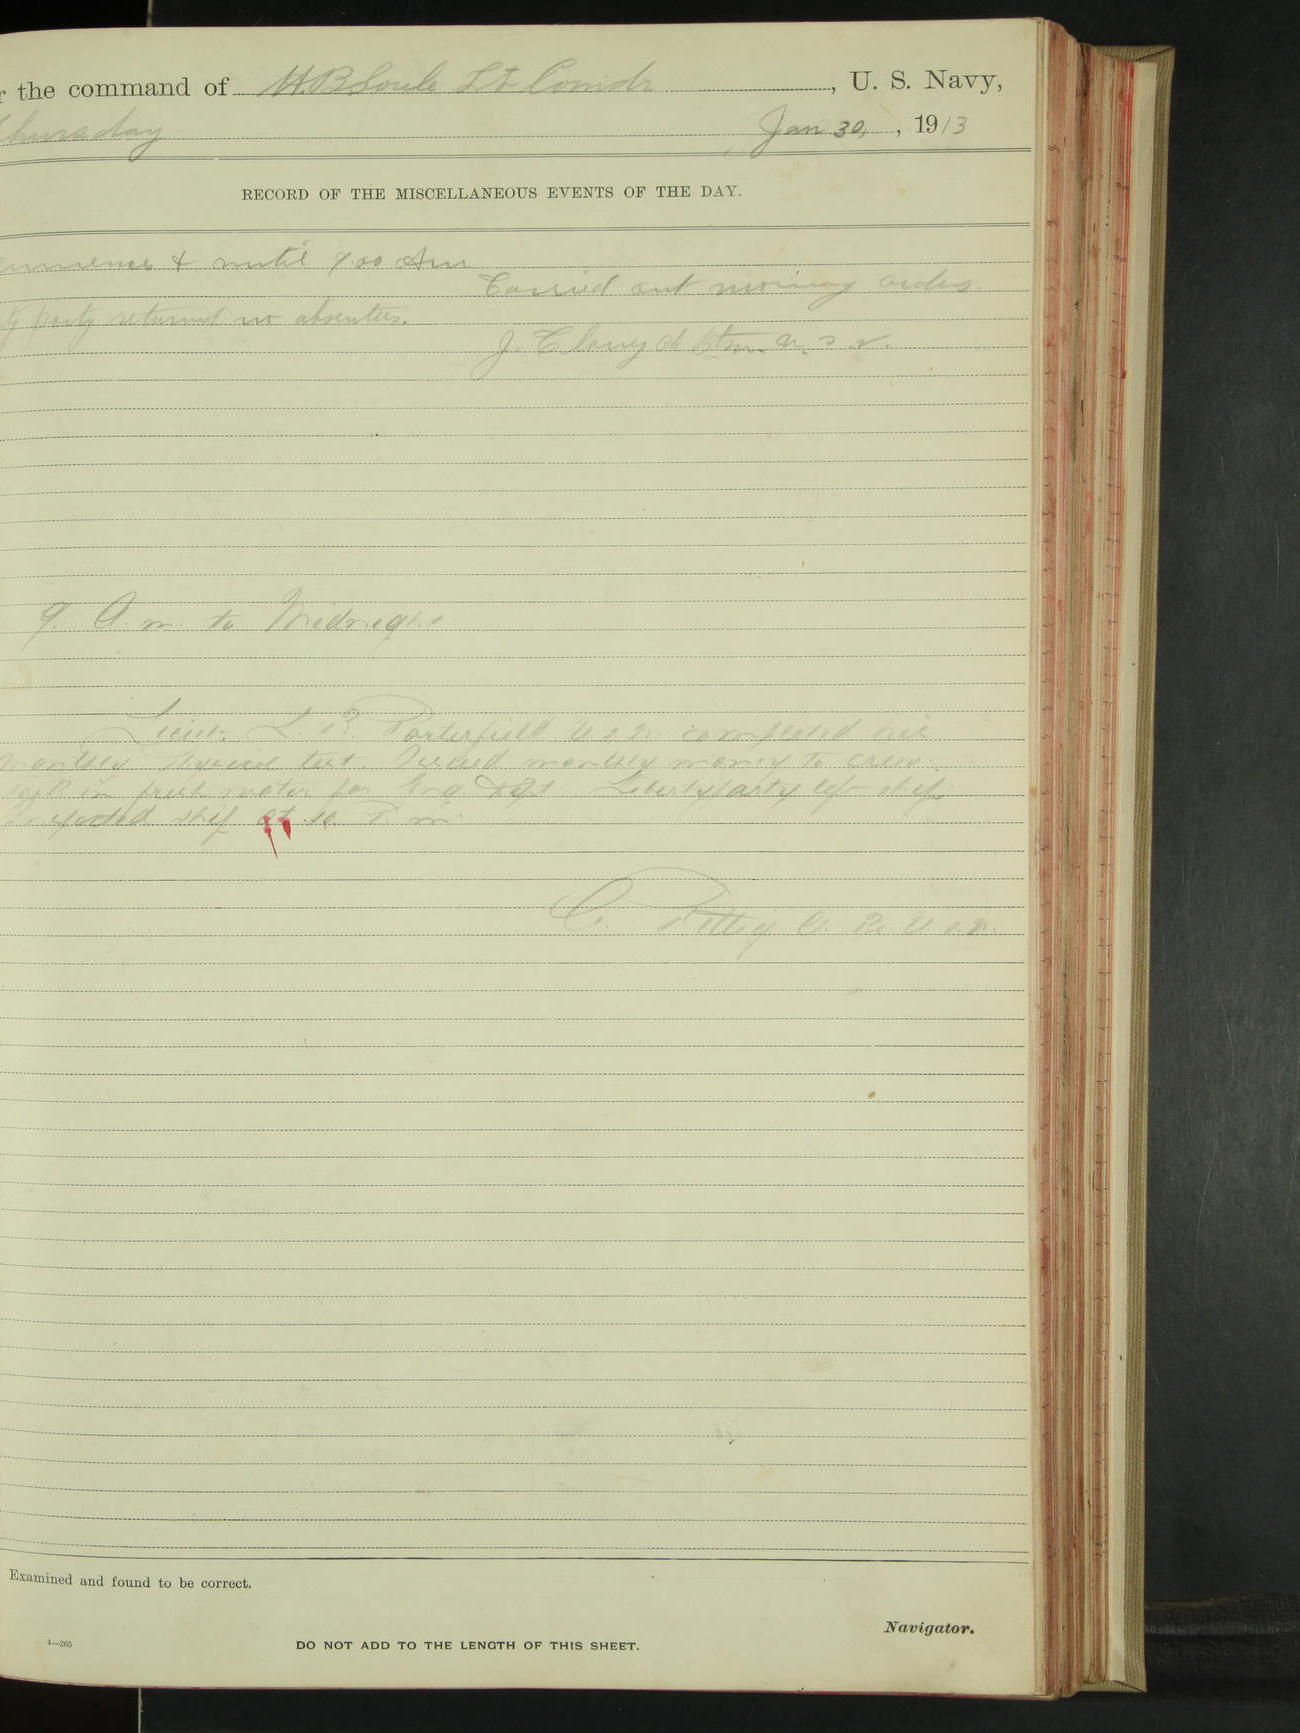 the command of H. B. Soule Lt Comdr, U. S. Navy,
Thursday Jan 30, 1913
RECORD OF THE MISCELLANEOUS EVENTS OF THE DAY.
& until 9.00 Am
Carried out morning orders.
party returned no absentees.
J. U. S. N.
9. A. m. to Midnight
Lieut. L. B. Porterfield U.S.N. completed his
monthly physical test. Issued monthly money to crew.
Took in fresh water for Eng Dept. Liberty party left ship
Inspected ship at 10 P. m.
C. U.S.N.
Examined and found to be correct.
Navigator.
4—265
DO NOT ADD TO THE LENGTH OF THIS SHEET.